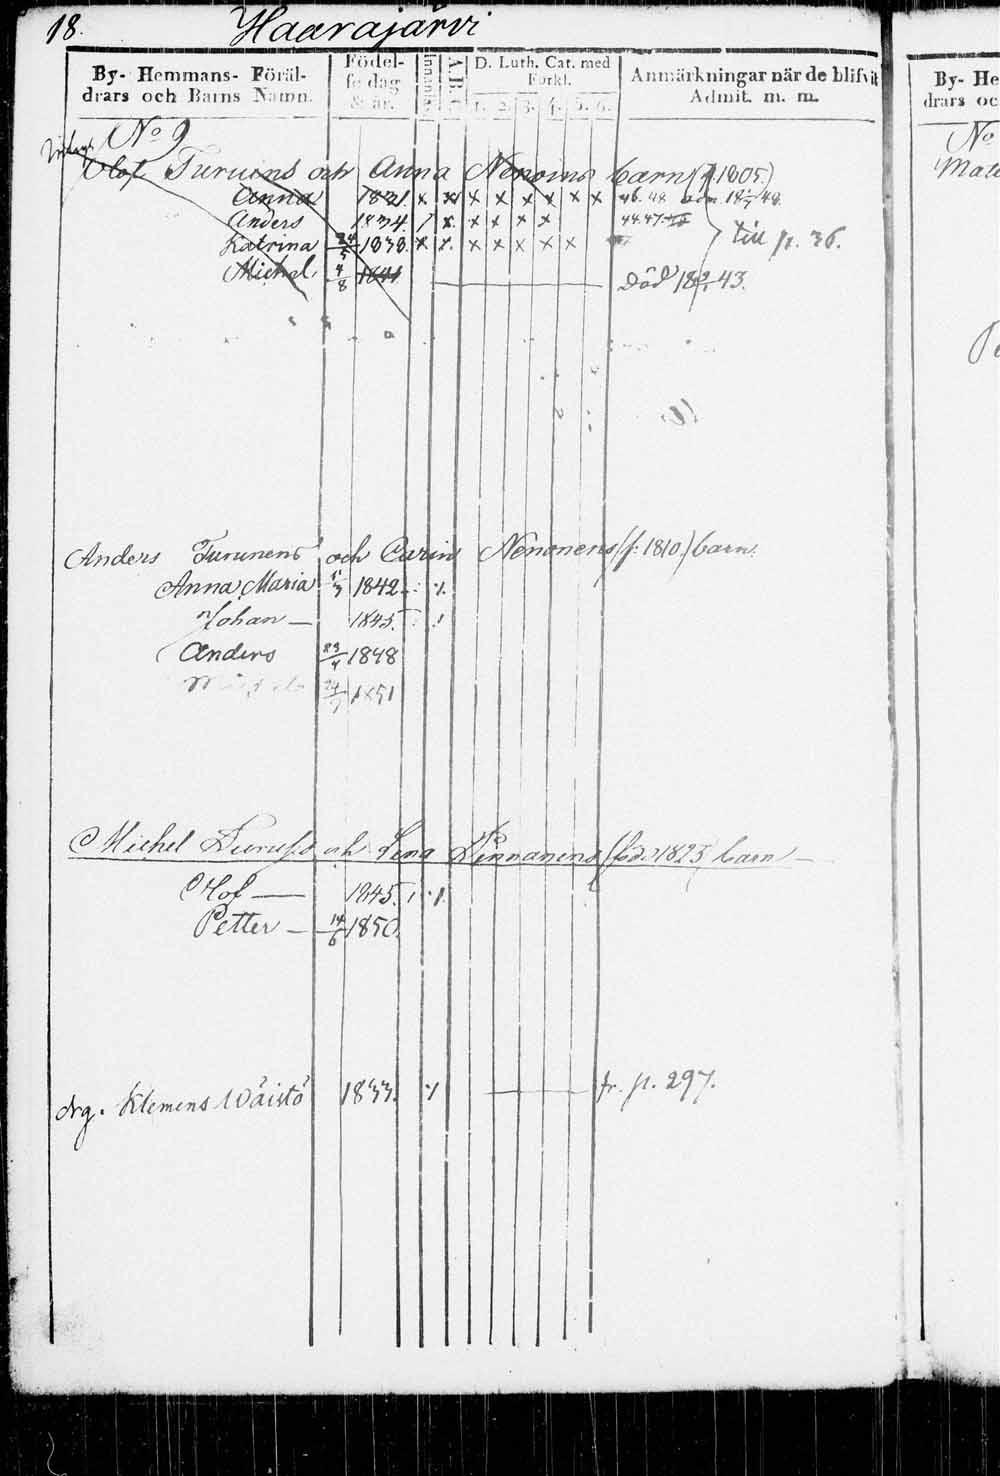 18. Haarajärvi
By- Hemmans- Föräl-
drars och Barns Namn.
Födel-
se dag
& år.
Innanläs.
A.B.C.
D. Luth. Cat. med
Förkl.
1. 2. 3. 4. 5. 6.
Anmärkningar när de blifvit
Admit. m. m.
By- He
drars oc
No 9
No
Olof Turuins och Anna Nenoins barn (f. 1805)
Anna 1831 x x x x x x x x 46. 48 adm. 18 48.
Anders 1834 / x x x x x 44.47.
Katrina 24/5 1838. x x x x x x x } till p. 36.
Michel 4/8 1841 död 18 43.
Anders Turunens och Carin Nenonens (f: 1810) barn.
Anna Maria 1842
Johan — 1845.
Anders 23/4 1848
1851
Michel Turuss och Lena Pinnanens (född 1825) barn —
Olof — 1845.
Petter — 14/6 1850.
drg. Klemens Wäistö 1833. fr. p. 297.